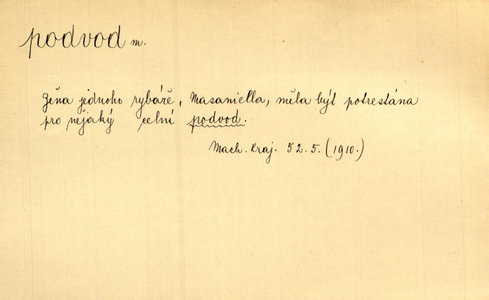 podvod m.
Žena jednoho rybáře, Masaniella, měla být potrestána
pro nějaký celní podvod.
Mach. Kraj. 52.5. (1910.)